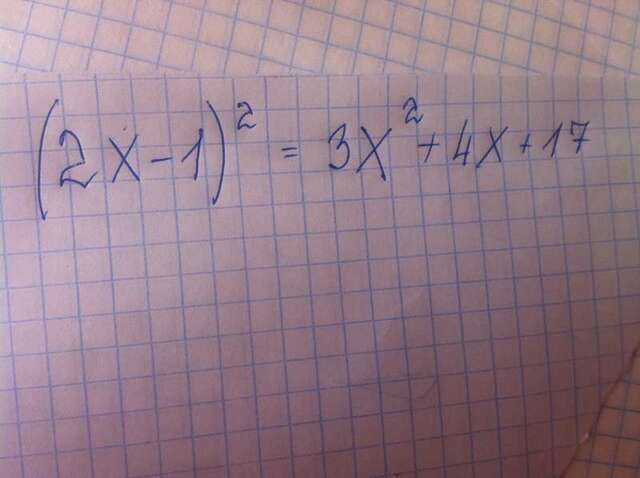 (2x-1)² = 3x² + 4x + 17